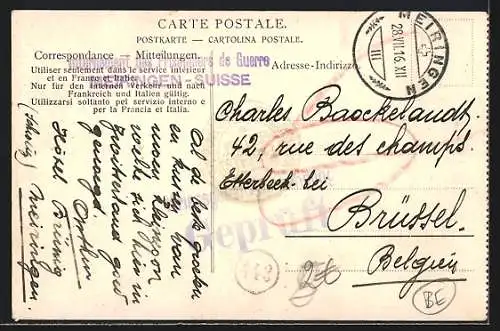 CARTE POSTALE.
POSTKARTE — CARTOLINA POSTALE.
Correspondance — Mitteilungen.
Utiliser seulement dans le service intérieur
et en France et Italie.
Nur für den Internen Verkehr und nach
Frankreich und Italien gültig.
Utilizzarsi soltanto pel servizio interno e
per la Francia et Italia.
de Guerre
SUISSE
Adresse-Indirizzo
MEIRINGEN
28.VII.16.XII
III
Charles Baeckelandt
42, rue des champs.
Etterbeek-bei
Brüssel.
Belgien
Geprüft
Al de beste groeten
en kussen van
uwen
die hier in
Zwitserland goed
Hôtel Brünig
Meiringen.
(Schweiz)
143
BE